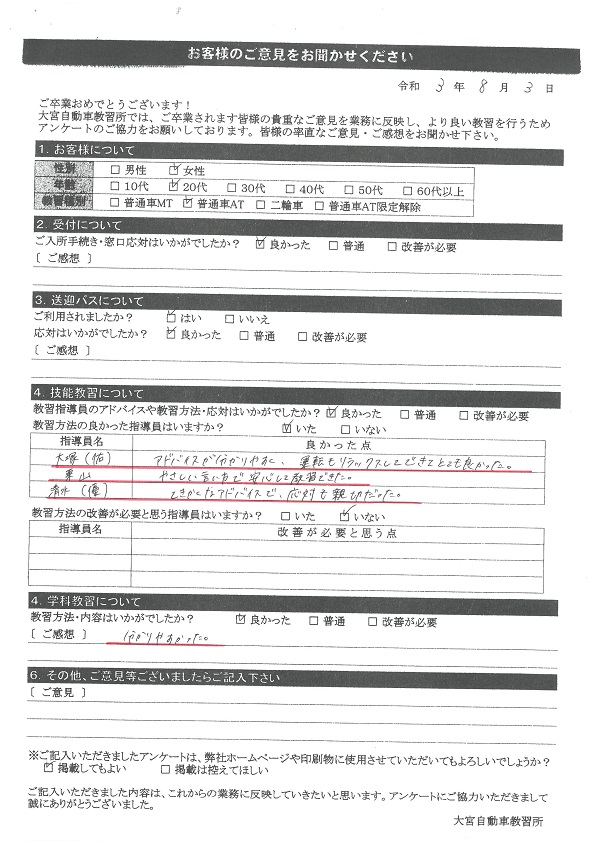 お客様のご意見をお聞かせください
令和 3 年 8 月 3 日
ご卒業おめでとうございます！
大宮自動車教習所では、ご卒業されます皆様の貴重なご意見を業務に反映し、より良い教習を行うため
アンケートのご協力をお願いしております。皆様の率直なご意見・ご感想をお聞かせ下さい。
1. お客様について
性別 □ 男性 ☑ 女性
年齢 □ 10代 ☑ 20代 □ 30代 □ 40代 □ 50代 □ 60代以上
教習種別 □ 普通車MT ☑ 普通車AT □ 二輪車 □ 普通車AT限定解除
2. 受付について
ご入所手続き・窓口応対はいかがでしたか？ ☑ 良かった □ 普通 □ 改善が必要
〔 ご感想 〕
3. 送迎バスについて
ご利用されましたか？ ☑ はい □ いいえ
応対はいかがでしたか？ ☑ 良かった □ 普通 □ 改善が必要
〔 ご感想 〕
4. 技能教習について
教習指導員のアドバイスや教習方法・応対はいかがでしたか？ ☑ 良かった □ 普通 □ 改善が必要
教習方法の良かった指導員はいますか？ ☑ いた □ いない
指導員名 良かった点
大塚（佑） アドバイスが分かりやすく、運転もリラックスしてできてとても良かった。
栗山 やさしい言い方で安心して教習できた。
清水（優） てきかくなアドバイスで、応対も親切だった。
教習方法の改善が必要と思う指導員はいますか？ □ いた ☑ いない
指導員名 改善が必要と思う点
4. 学科教習について
教習方法・内容はいかがでしたか？ ☑ 良かった □ 普通 □ 改善が必要
〔 ご感想 〕 分かりやすかった。
6. その他、ご意見等ございましたらご記入下さい
〔 ご意見 〕
※ご記入いただきましたアンケートは、弊社ホームページや印刷物に使用させていただいてもよろしいでしょうか？
☑ 掲載してもよい □ 掲載は控えてほしい
ご記入いただきました内容は、これからの業務に反映していきたいと思います。アンケートにご協力いただきまして
誠にありがとうございました。
大宮自動車教習所